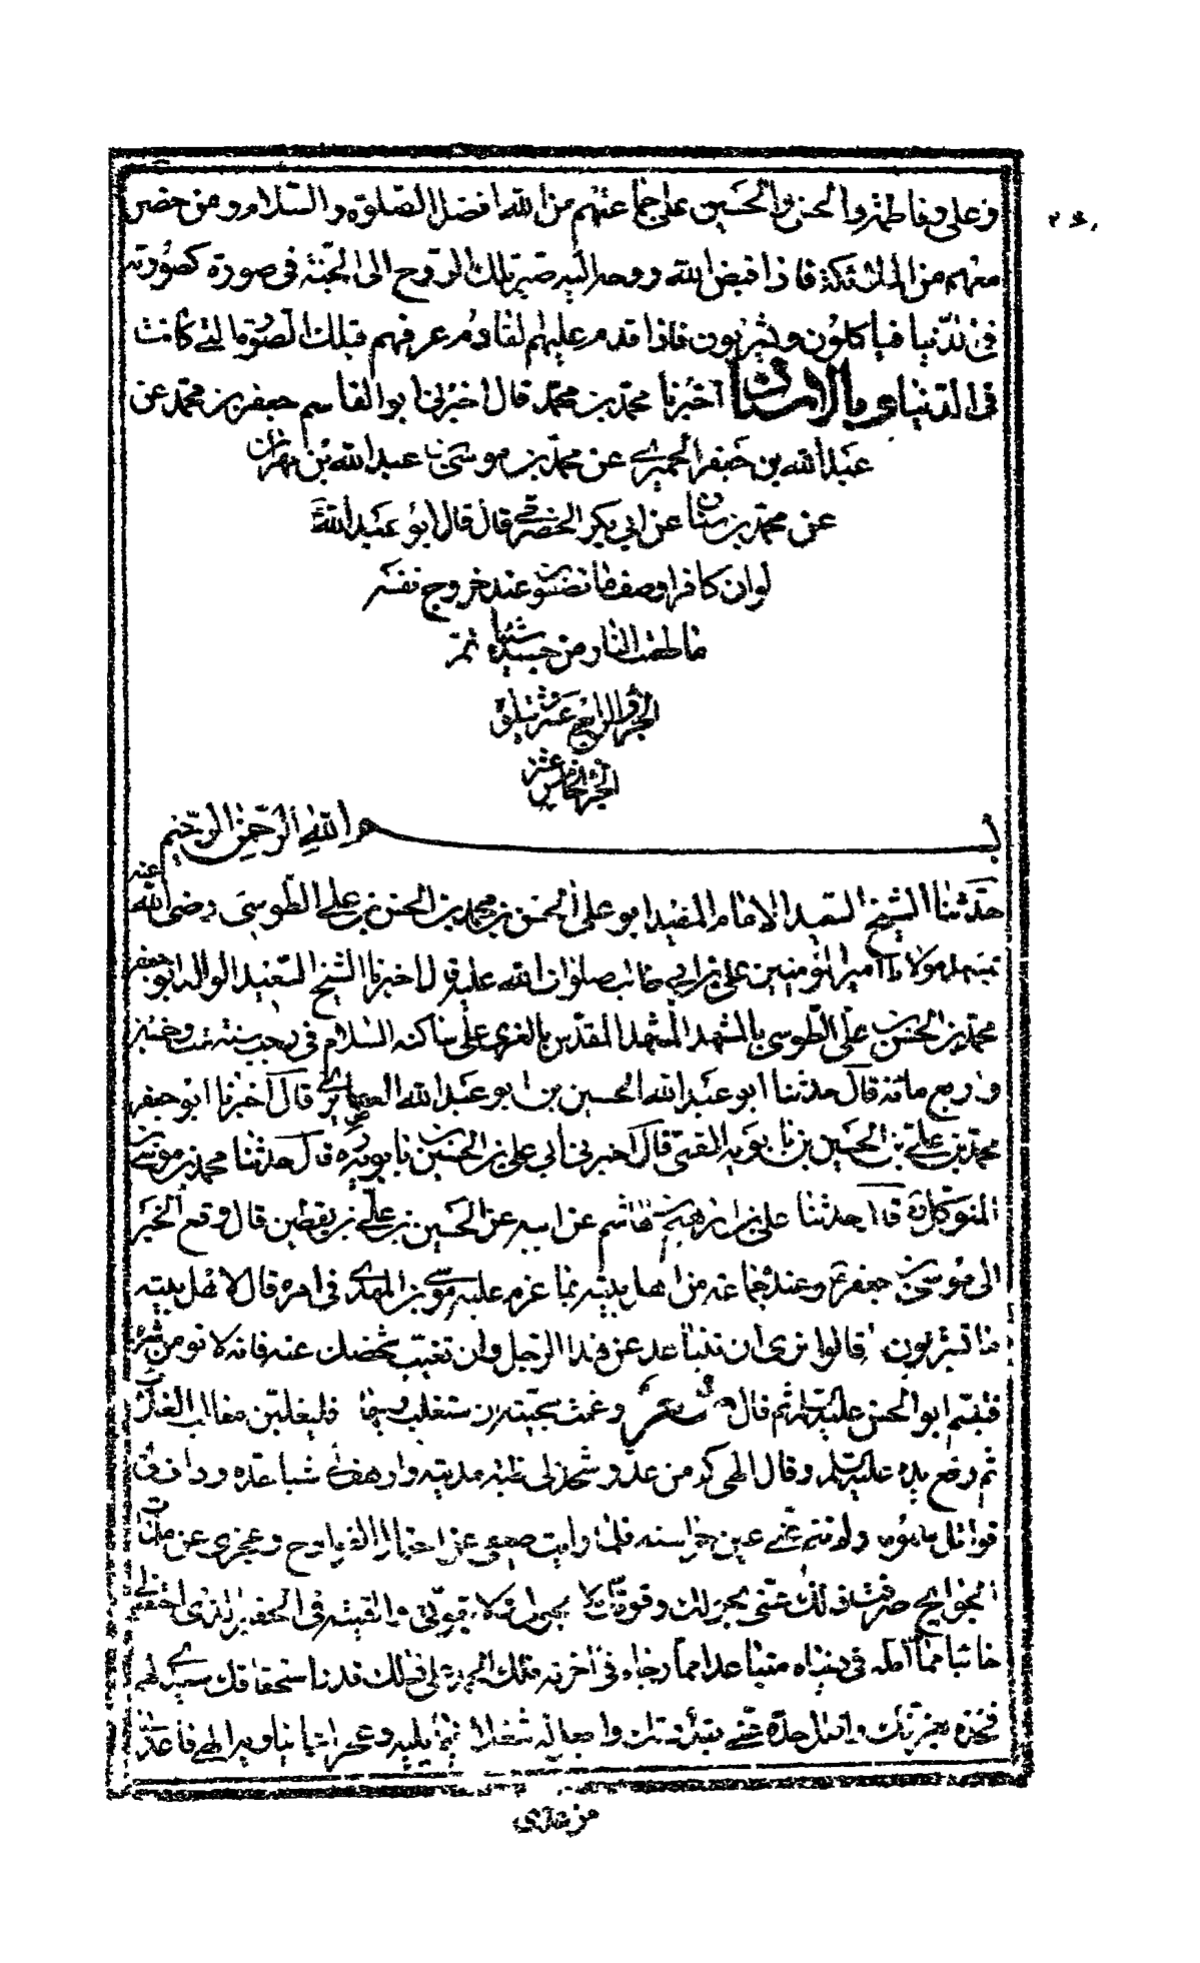 ۲۶۰
و علی و فاطمة و الحسن و الحسین علی جماعتهم من الله افضل الصلوة و السلام و من حضر
معهم من الملائکة فاذا قبض الله روحه الیه صیر تلک الروح الی الجنة فی صورة کصورته
فی الدنیا فیاکلون و یشربون فاذا قدم علیهم القادم عرفهم بتلک الصورة التی کانت
فی الدنیا و بالاسناد اخبرنا محمد بن محمد قال اخبرنی ابو القاسم جعفر بن محمد عن
عبد الله بن جعفر الحمیری عن محمد بن موسی عبد الله بن مهران
عن محمد بن سنان عن ابی بکر الحضرمی قال قال ابو عبد الله ع
لو ان کافرا وصف ما تصفون عند خروج نفسه
ما طعمت النار من جسده شیئا تم
الجزو الرابع عشر یتلوه
الجزء الخامس عشر
بسم الله الرحمن الرحیم
حدثنا الشیخ السعید الامام المفید ابو علی الحسن بن محمد بن الحسن بن علی الطوسی رضی الله عنه
بمشهد مولانا امیر المؤمنین علی بن ابی طالب صلوات الله علیه قال اخبرنا الشیخ السعید الوالد ابو جعفر
محمد بن الحسن بن علی الطوسی بالمشهد المقدس بالغری علی ساکنه السلام فی رجب سنة ست و خمسین
و اربع مائة قال حدثنا ابو عبد الله الحسین بن ابو عبد الله الغضایری قال اخبرنا ابو جعفر
محمد بن علی بن الحسین بن بابویه القمی قال اخبرنی ابی علی بن الحسین بن بابویه ره قال حدثنا محمد بن موسی بن
المتوکل ره قال حدثنا علی بن ابراهیم بن هاشم عن ابیه عن الحسین بن علی بن یقطین قال وقع الخبر
الی موسی بن جعفر ع و عنده جماعة من اهل بیته بما عزم علیه موسی بن المهدی فی امره قال لاهل بیته
ما تشیرون قالوا نری ان تتباعد عن هذا الرجل و ان تغیب شخصک عنه فانه لا تؤمن شره
فتبسم ابو الحسن علیه السلام ثم قال شعر زعمت سخینة ان ستغلب ربها فلیغلبن مغالب الغلاب
ثم رفع یده علیه السلم و قال الهی کم من عدو شحذ لی ظبة مدیته و ارهف شبا حده و داف لی
قواتل سمومه و لم تنم عنی عین حراسته فلما رایت ضعفی عن احتمال الفوادح و عجزی عن ملمات
الجوایح صرفت ذلک عنی بحولک و قوتک لا بحولی و لا بقوتی و القیته فی الحفیر الذی احتفر لی
خائبا مما امله فی دنیاه متباعدا مما رجاه فی اخرته فلک الحمد علی ذلک قدر استحقاقک سیدی اللهم
فخذه بعزتک و افلل حده عنی بقدرتک و اجعل له شغلا فیما یلیه و عجزا عما یناویه اللهم فاعدنی
من عدوی